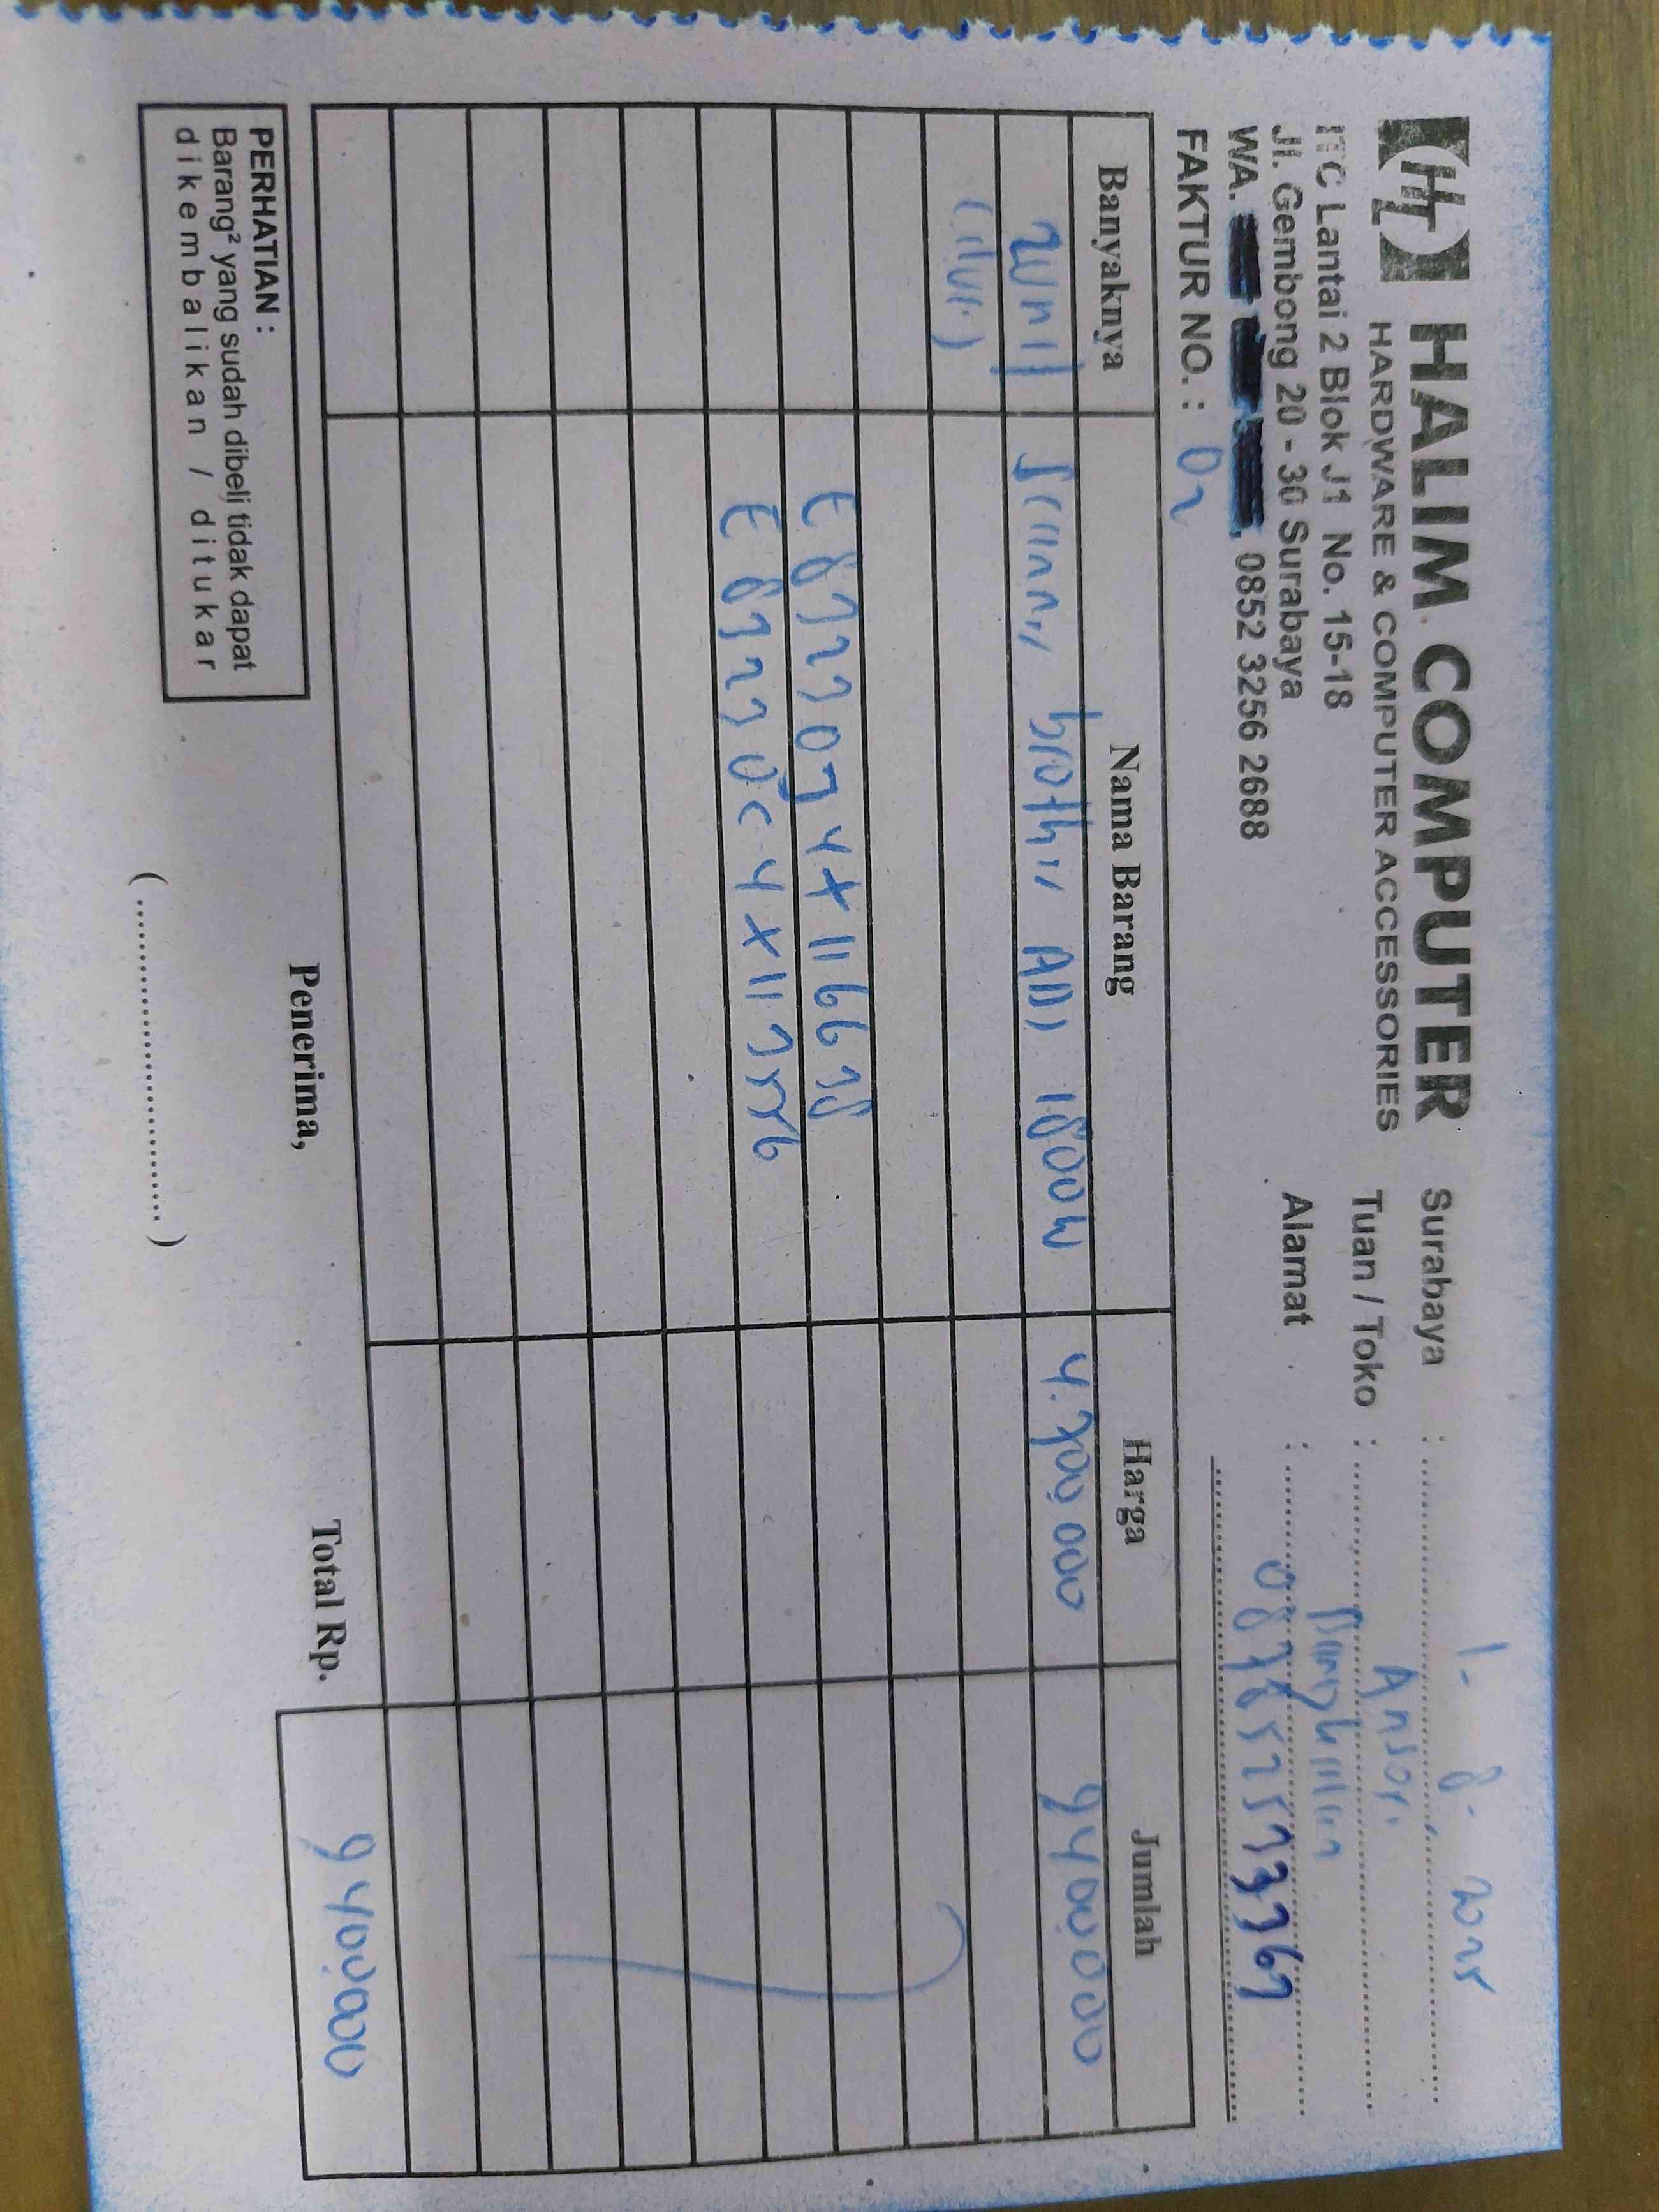 HALIM COMPUTER
HARDWARE & COMPUTER ACCESSORIES
ITC Lantai 2 Blok J1 No. 15-18
Jl. Gembong 20 - 30 Surabaya
WA. 0852 3256 2688
FAKTUR NO. : 02
Surabaya : 1 - 8 - 2025
Tuan / Toko : Ansori
Bangkalan
Alamat :
Banyaknya Nama Barang Harga Jumlah
2 unit Scanner brother ADS 1800W 4.700.000 9400.000
(dua)
Total Rp. 9400.000
Penerima,
( )
PERHATIAN :
Barang² yang sudah dibeli tidak dapat
dikembalikan / ditukar